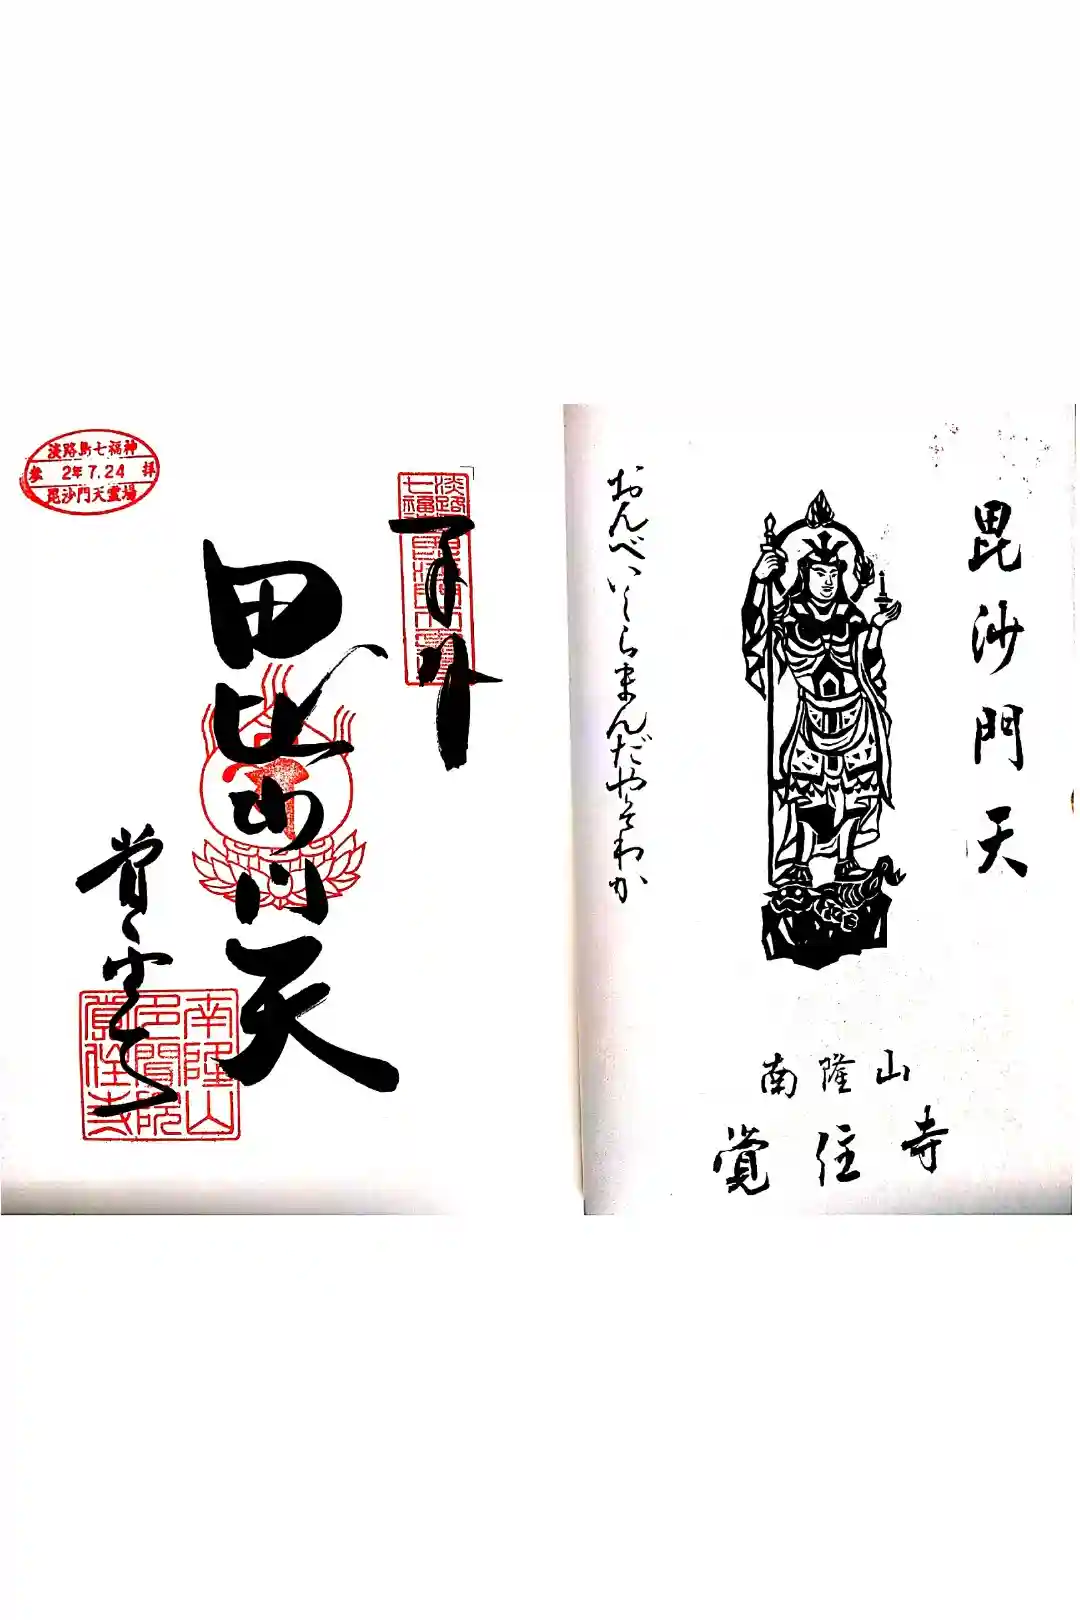 淡路島七福神
参 2年7.24 拝
毘沙門天霊場
奉拝
毘沙門天
覚住寺
南隆山
多聞院
覚住寺
毘沙門天
おんべいしらまんだやそわか
南隆山
覚住寺